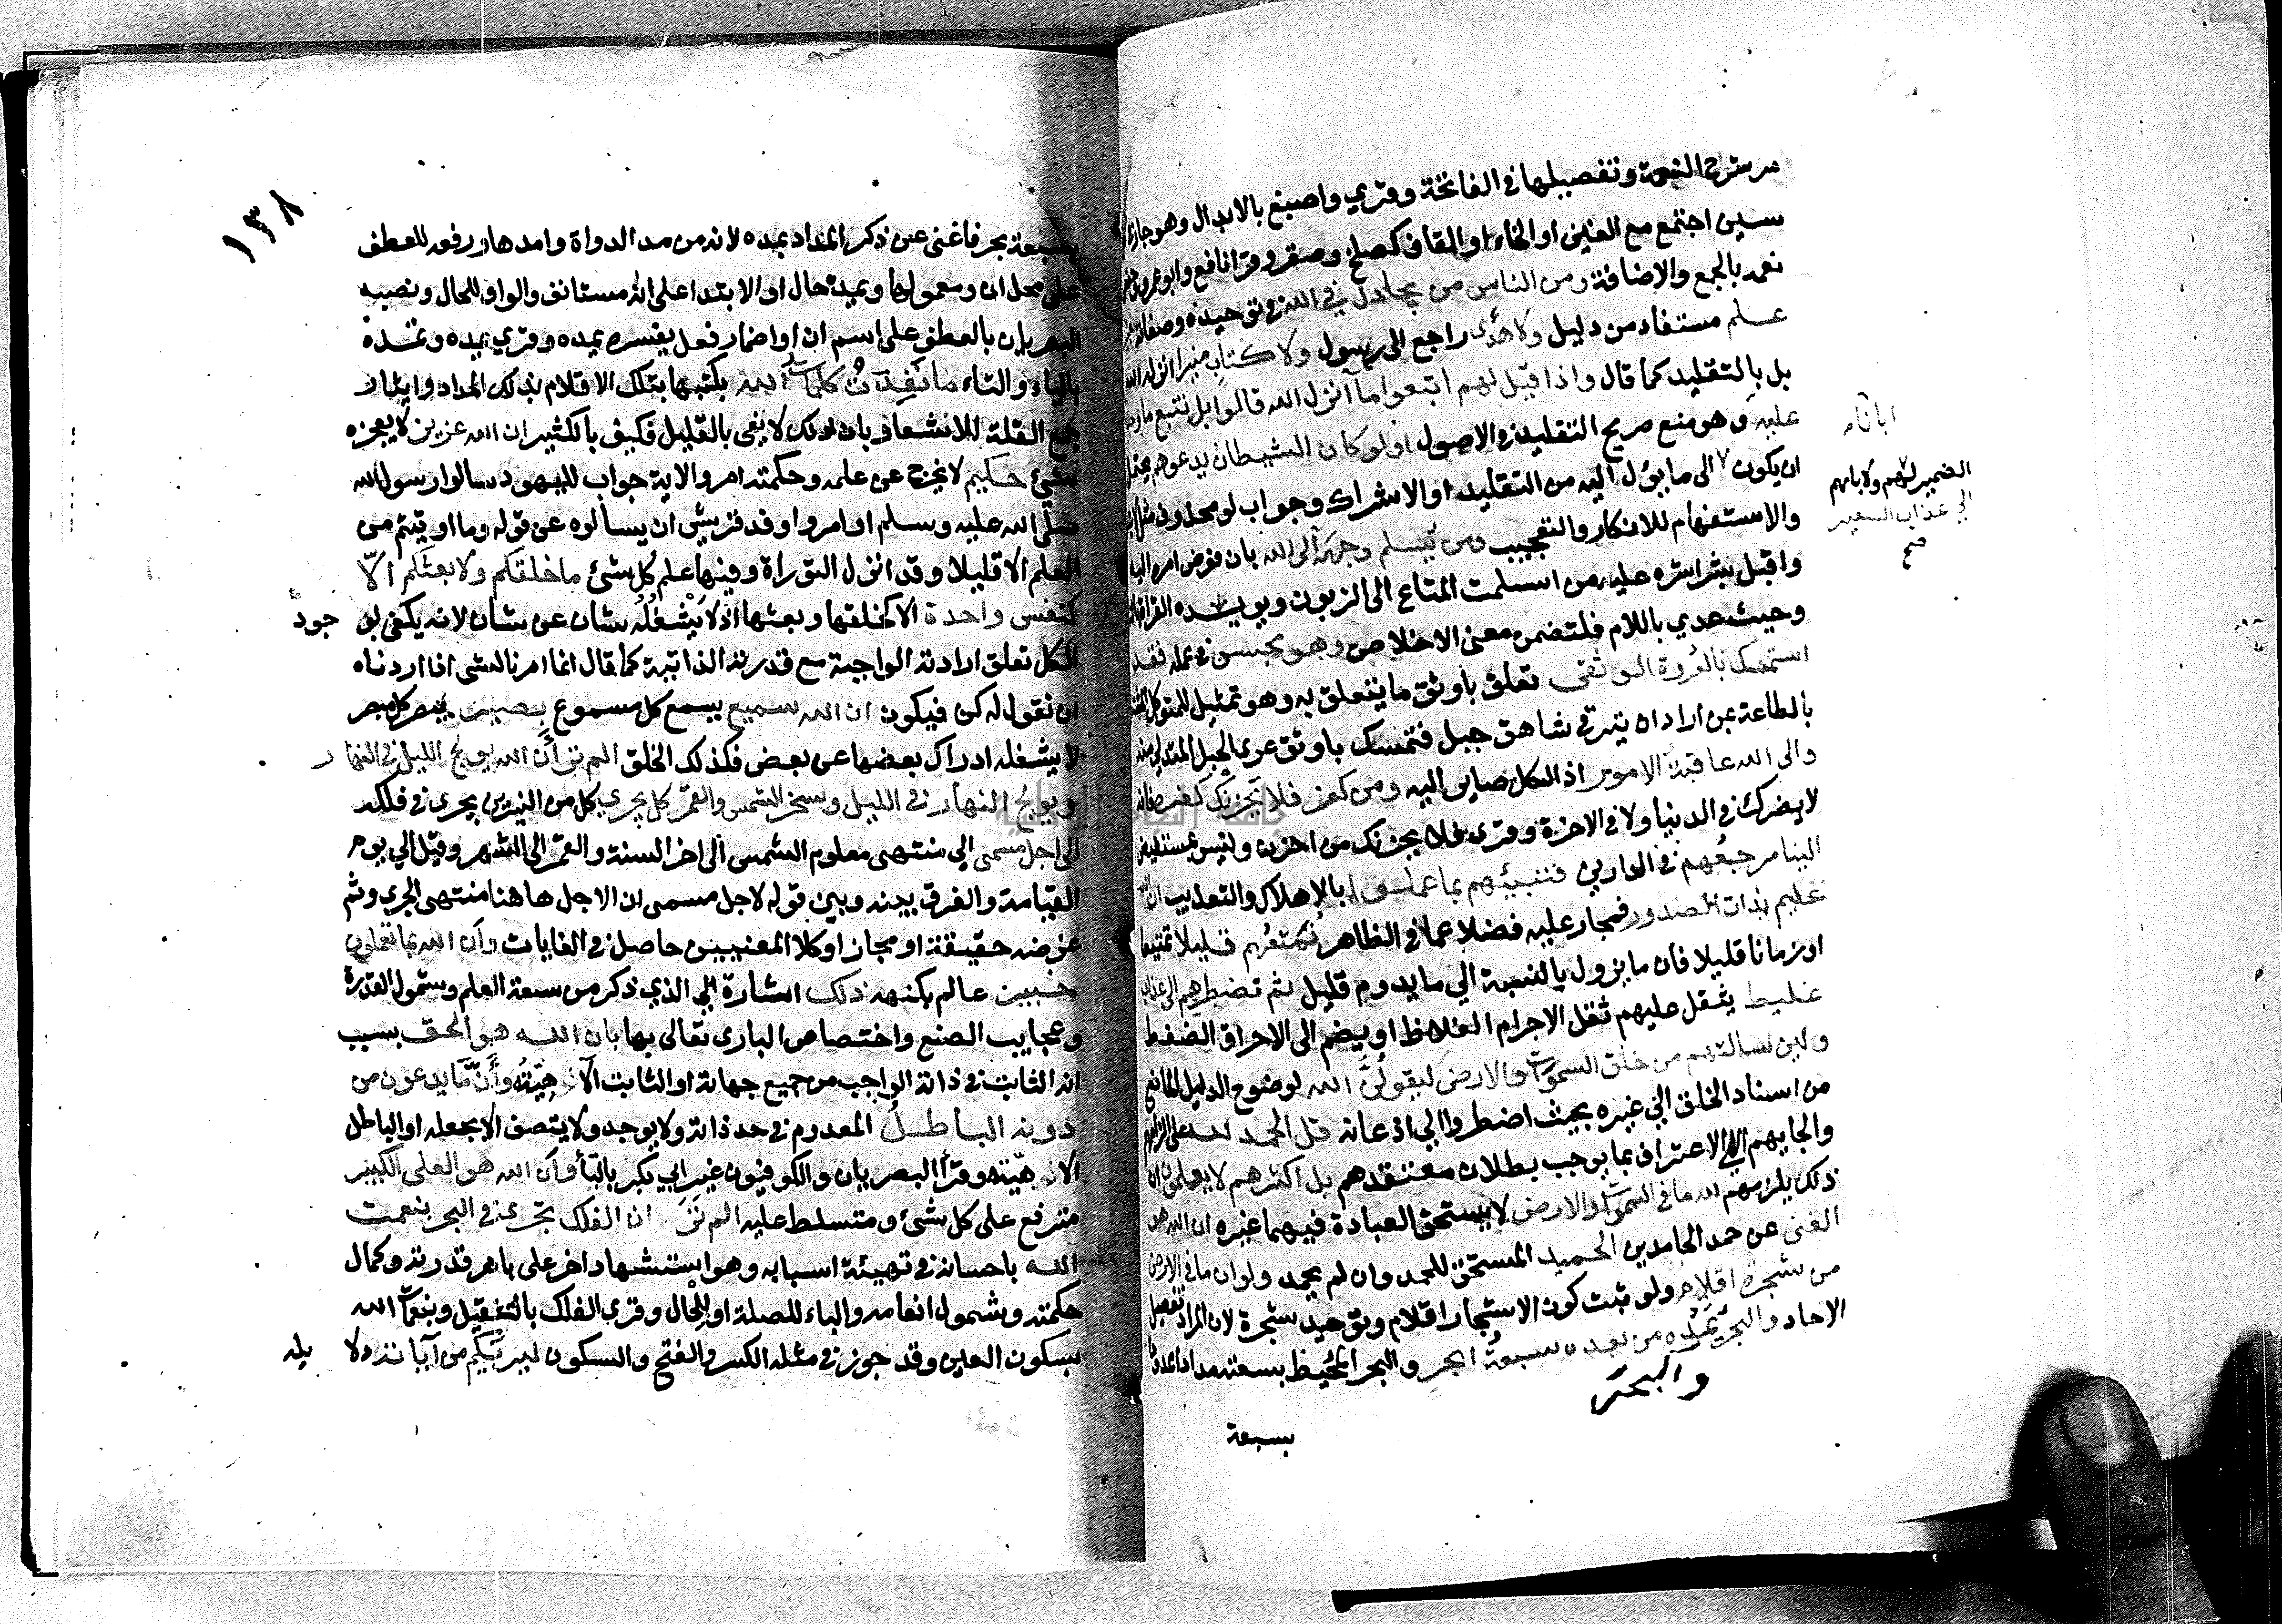 مر شرح النعمة وتفصيلها في الفاتحة وقري واصبغ بالابدال وهو جاز
سين اجتمع مع الغين او الخاء او القاف كصلخ وصقر وقرا نافع وابو عمرو
نعمه بالجمع والاضافة ومن الناس من يجادل في الله في توحيده وصفاته
علم مستفاد من دليل ولا هدى راجع الى رسول ولا كتاب منير انزله الله
بل بالتقليد كما قال واذا قيل لهم اتبعوا ما انزل الله قالوا بل نتبع ما وجدنا
عليه وهو منع صريح التقليد في الاصول اولو كان الشيطان يدعوهم يحتمل
ان يكون الى ما يؤل اليه من التقليد او الاشراك وجواب لو محذوف
والاستفهام للانكار والتعجيب ومن يسلم وجهه الى الله بان فوض امره اليه
واقبل بشراشره عليه من اسلمت المتاع الى الزبون ويويده القراة
وحيث عدي باللام فلتضمن معنى الاخلاص وهو محسن في عمله فقد
استمسك بالعروة الوثقى تعلق باوثق ما يتعلق به وهو تمثيل للمتوكل
بالطاعة بمن اراد ان يترقى شاهق جبل فتمسك باوثق عرى الحبل المتدلي منه
والى الله عاقبة الامور اذ الكل صاير اليه ومن كفر فلا يحزنك كفره فانه
لا يضرك في الدنيا ولا في الاخرة وقرى فلا يحزنك من احزن وليس بمستفيض
الينا مرجعهم في الدارين فننبئهم بما عملوا بالاهلاك والتعذيب ان الله
عليم بذات الصدور فمجاز عليه فضلا عما في الظاهر نمتعهم قليلا تمتيعا
او زمانا قليلا فان ما يزول بالنسبة الي ما يدوم قليل ثم نضطرهم الى عذاب
غليظ يثقل عليهم ثقل الاجرام الغلاظ او يضم الى الاحراق الضغط
ولين سالتهم من خلق السموات والارض ليقولن الله لوضوح الدليل المانع
من اسناد الخلق الي غيره بحيث اضطروا الي اذعانه قل الحمد لله على الزامهم
والجايهم الي الاعتراف بما يوجب بطلان معتقدهم بل اكثرهم لا يعلمون ان
ذلك يلزمهم لله ما في السموات والارض لا يستحق العبادة فيهما غيره ان الله هو
الغنى عن حمد الحامدين الحميد المستحق للحمد وان لم يحمد ولو ان ما في الارض
من شجرة اقلام ولو ثبت كون الاشجار اقلام وتوحيد شجرة لان المراد تفصيل
الاحاد والبحر يمده من بعده سبعة ابحر والبحر المحيط بسعته مدادا ممدودا
والبحر
بسبعة
اباناء
الضمير لهم ولابائهم
الي عذاب السعير
صح
١٣٨
بسبعة بحر فاغنى عن ذكر المداد يمده لانه من مد الدواة وامدها ورفعه للعطف
على محل ان ومعمولها ويمده حال او الابتدا على انه مستانف والواو للحال ونصبه
البصريان بالعطف على اسم ان او اضمار فعل يفسره يمده وقري يمده وتمده
بالياء والتاء ما نفدت كلمات الله بكتبها بتلك الاقلام بذلك المداد وايثار
جمع القلة للاشعار بان ذلك لا يفى بالقليل فكيف بالكثير ان الله عزيز لا يعجزه
شئ حكيم لا يخرج عن علمه وحكمته امر والاية جواب لليهود سالوا رسول الله
صلى الله عليه وسلم او امروا وفد قريش ان يسالوه عن قوله وما اوتيتم من
العلم الا قليلا وقد انزل التوراة وفيها علم كل شئ ما خلقكم ولا بعثكم الا
كنفس واحدة الا كخلقها وبعثها اذ لا يشغله شان عن شان لانه يكفى لو جود
الكل تعلق ارادته الواجبة مع قدرته الذاتية كما قال انما امرنا لشى اذا اردناه
ان نقول له كن فيكون ان الله سميع يسمع كل مسموع بصير يبصر كل مبصر
لا يشغله ادراك بعضها عن بعض فكذلك الخلق الم تر ان الله يولج الليل في النهار
ويولج النهار في الليل وسخر الشمس والقمر كل يجري كل من النيرين يجرى في فلكه
الى اجل مسمى الي منتهى معلوم الشمس الى اخر السنة والقمر الى الشهر وقيل الي يوم
القيامة والفرق بينه وبين قوله لاجل مسمى ان الاجل هاهنا منتهى الجري وثم
غرضه حقيقة او مجازا وكلا المعنيين حاصل في الغايات وان الله بما تعملون
خبير عالم بكنهه ذلك اشارة الي الذي ذكر من سعة العلم وشمول القدرة
وعجايب الصنع واختصاص البارى تعالى بها بان الله هو الحق بسبب
انه الثابت في ذاته الواجب من جميع جهاته او الثابت الاهيته وان ما يدعون من
دونه الباطل المعدوم في حد ذاته ولا يوجد ولا يتصف الا بجعله او الباطل
الاهيته وقرأ البصريان والكوفيون غير ابي بكر بالياء وان الله هو العلى الكبير
مترفع على كل شئ ومتسلط عليه الم تر ان الفلك تجرى في البحر بنعمت
الله باحسانه في تهيئة اسبابه وهو استشهاد اخر على باهر قدرته وكمال
حكمته وشمول انعامه والباء للصلة او للحال وقرى الفلك بالتثقيل وبنعمات الله
بسكون العين وقد جوز في مثله الكسر والفتح والسكون ليريكم من آياته دلا يله